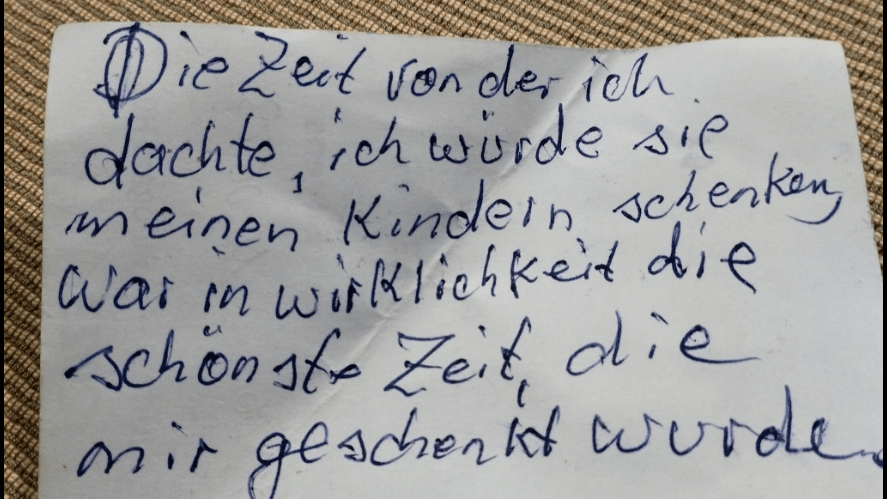 Die Zeit von der ich
dachte, ich würde sie
meinen Kindern schenken,
war in wirklichkeit die
schönste Zeit, die
mir geschenkt wurde.